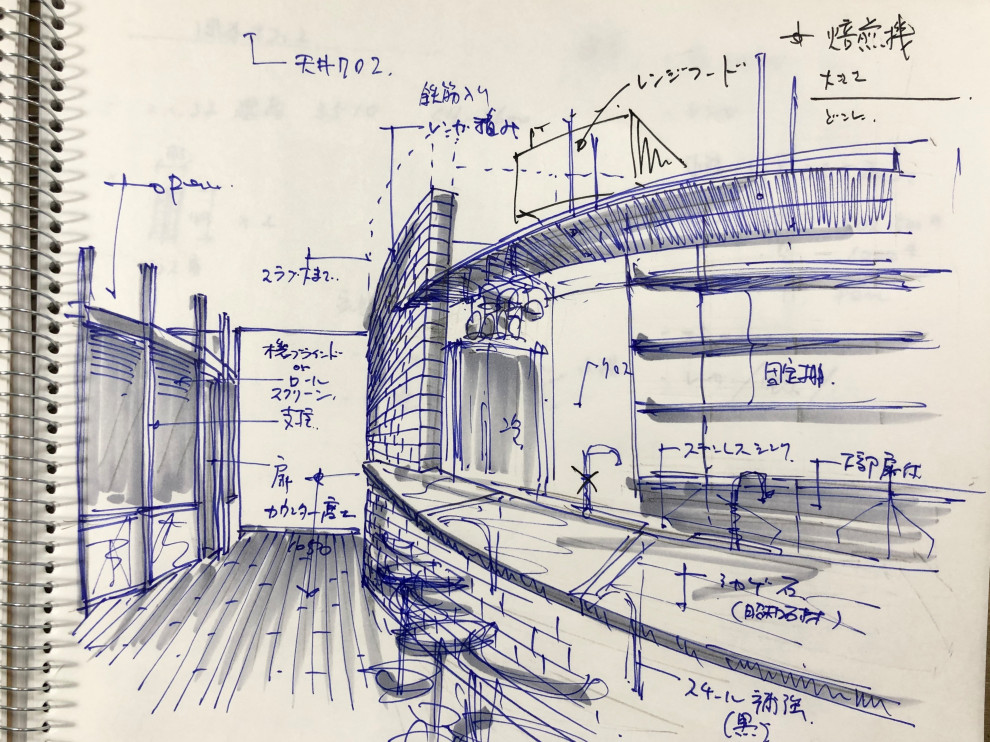 天井クロス
焙煎機
大きさ
レンジフード
鉄筋入り
レンガ積み
open
スラブ下まで
横ブラインド
or
ロール
スクリーン
支柱
扉
カウンター高さ
1050
クロス
固定棚
ステンレスシンク
下部扉付
ミカゲ石
スチール補強
(黒)